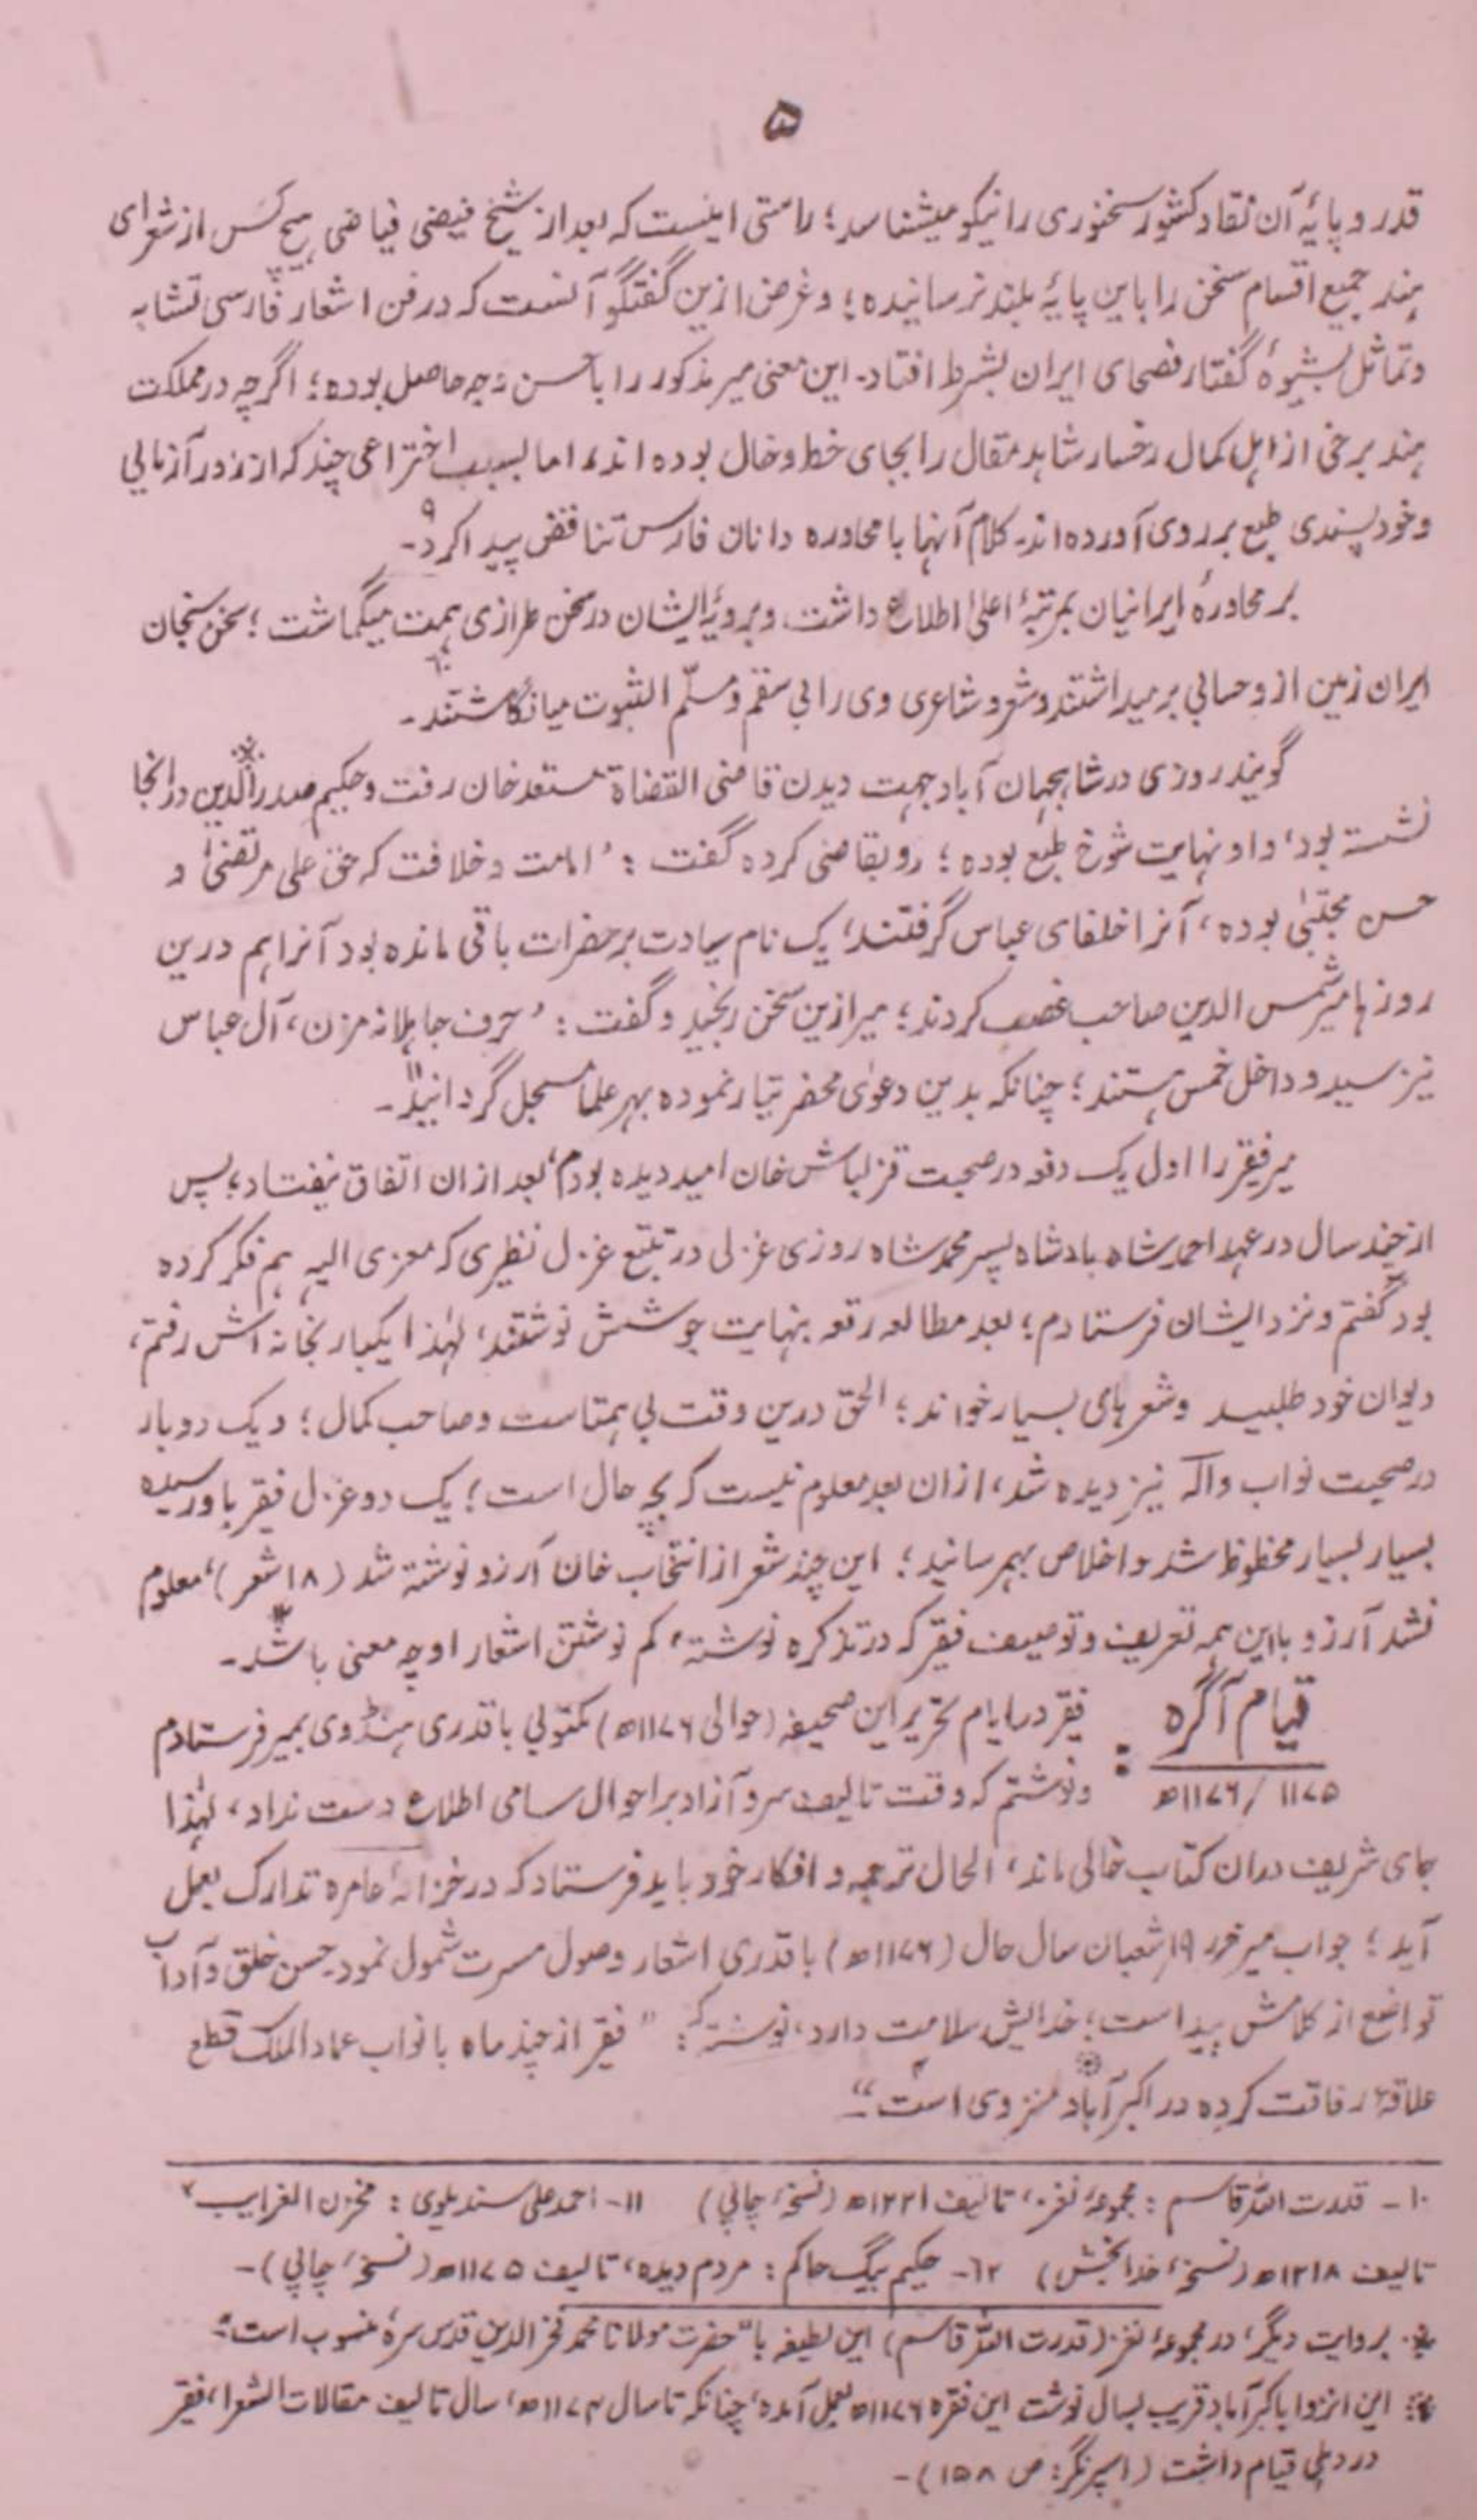 ۵
قدر و پایهٔ آن نقاد کشور سخنوری را نیکو میشناسد؛ راستی اینست که بعد از شیخ فیضی فیاضی هیچ کس از شعرای
هند جمیع اقسام سخن را باین پایهٔ بلند نرسانیده؛ و غرض ازین گفتگو آنست که در فن اشعار فارسی تشابه
و تماثل بشیوهٔ گفتار فصحای ایران بشرط افتاد۔ این معنی میر مذکور را باحسن وجه حاصل بوده؛ اگرچه در مملکت
هند برخی از اهل کمال رخسار شاهد مقال را بجای خط و خال بوده اند، اما بسبب اختراعی چند که از زور آزمایی
و خود پسندی طبع بر روی آورده‌اند۔ کلام آنها با محاوره دانان فارس تناقض پیدا کرد۹۔
بر محاورهٔ ایرانیان بمرتبهٔ اعلیٰ اطلاع داشت، و برویهٔ ایشان در سخن طرازی همت میگماشت؛ سخن سنجان
ایران زمین از و حسابی برمیداشتند و شعر و شاعری وی را بی سقم و مسلّم الثبوت میانگاشتند۱۰۔
گویند روزی در شاهجهان آباد جهت دیدن قاضی القضاة مستعد خان رفت و حکیم صدرالدین٭ در انجا
نشسته بود، و او نهایت شوخ طبع بوده؛ رو بقاضی کرده گفت: ’امامت و خلافت که حق علی مرتضیٰ و
حسن مجتبیٰ بوده، آنرا خلفای عباس گرفتند، یک نام سیادت بر حضرات باقی مانده بود آنرا هم درین
روزها میر شمس الدین صاحب غصب کردند؛ میر ازین سخن رنجید و گفت: ’حرف جاهلانه مزن، آل عباس
نیز سید و داخل خمس هستند؛ چنانکه بدین دعویٰ محضر تیار نموده بمهر علما مسجل گردانید۱۱۔
میر فقیر را اول یک دفعه در صحبت قزلباش خان امید دیده بودم، بعد ازان اتفاق نیفتاد؛ پس
از چند سال در عهد احمد شاه بادشاه پسر محمد شاه روزی غزلی در تتبع غزل نظیری که معزی الیه هم فکر کرده
بود گفتم و نزد ایشان فرستادم؛ بعد مطالعه رقعه بنهایت جوشش نوشتند، لهٰذا یکبار بخانه اش رفتم،
دیوان خود طلبید و شعرهای بسیار خواند؛ الحق درین وقت بی همتاست و صاحب کمال؛ و یک دو بار
در صحبت نواب والہ نیز دیده شد، ازان بعد معلوم نیست که بچه حال است؛ یک دو غزل فقیر باو رسیده
بسیار بسیار محظوظ شد و اخلاص بهمرسانید؛ این چند شعر از انتخاب خان آرزو نوشته شد (۱۸ شعر)، معلوم
نشد آرزو بااین همه تعریف و توصیف فقیر که در تذکره نوشته، کم نوشتن اشعار او چه معنی باشد۱۲۔
قیام آگره : فقیر در ایام تحریر این صحیفه (حوالی ۱۱۷۶ھ) مکتوبی باقدری هنڈوی بمیر فرستادم
۱۱۷۵/۱۱۷۶ھ و نوشتم که وقت تالیف سرو آزاد بر احوال سامی اطلاع دست نداد، لهٰذا
جای شریف دران کتاب خالی ماند، الحال ترجمه و افکار خود باید فرستاد که در خزانهٔ عامره تدارک بعمل
آید؛ جواب میر محرر ۱۹ شعبان سال حال (۱۱۷۶ھ) باقدری اشعار وصول مسرت شمول نمود۔ حسن خلق و آداب
تواضع از کلامش پیداست؛ خدایش سلامت دارد، نوشته که: ”فقیر از چند ماه با نواب عماد الملک قطع
علاقهٔ رفاقت کرده در اکبرآباد منزوی است“۔
۱۰- قدرت اللہ قاسم: مجموعهٔ نغز، تالیف ۱۲۲۱ھ (نسخهٔ چاپی) ۱۱- احمد علی سندیلوی: مخزن الغرایب،
تالیف ۱۲۱۸ھ (نسخهٔ خدابخش) ۱۲- حکیم بیگ حاکم: مردم دیده، تالیف ۱۱۷۵ھ (نسخهٔ چاپی)۔
٭ بروایت دیگر، در مجموعهٔ نغز (قدرت اللہ قاسم) این لطیفه با ”حضرت مولانا محمد فخر الدین قدس سرهٔ منسوب است“۔
این انزوا باکبرآباد قریب بسال نوشت این فقره ۱۱۷۶ھ بعمل آمده، چنانکه تا سال ۱۱۷۴ھ، سال تالیف مقالات الشعرا، فقیر
در دهلی قیام داشت (اسپرنگر: ص ۱۵۸)۔